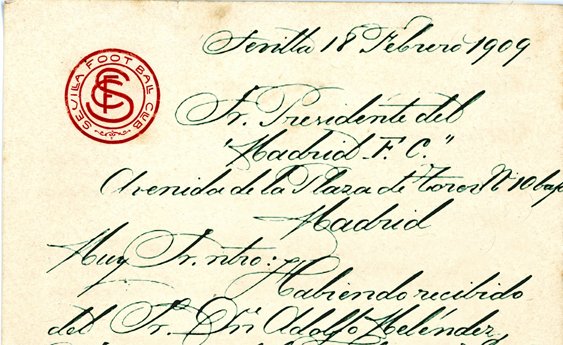 SEVILLA FOOT BALL CLUB
SFC
Sevilla 18 Febrero 1909
Sr. Presidente del
"Madrid F. C."
Avenida de la Plaza de Toros Nº 10 bajo
Madrid
Muy Sr. ntro:
Habiendo recibido
del Sr. Dn Adolfo Meléndez